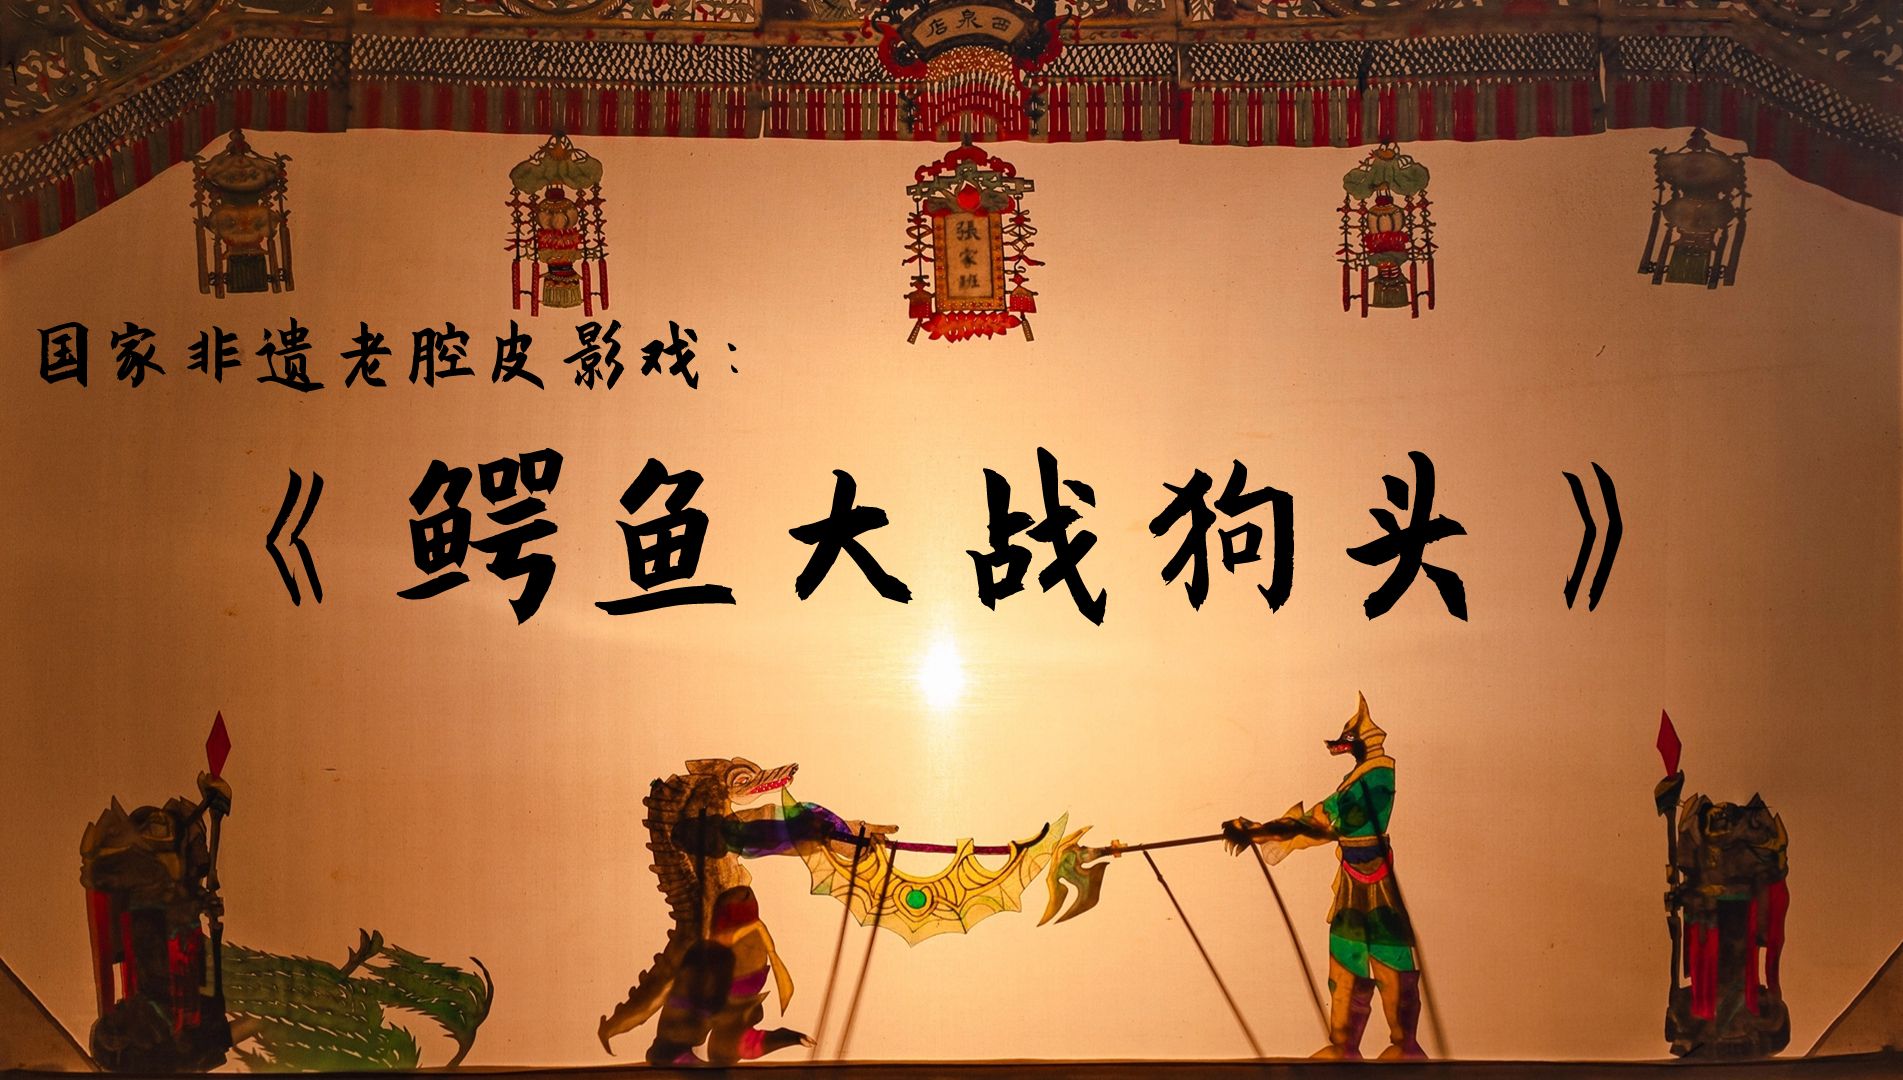 店泉西
張家班
国家非遗老腔皮影戏：
《鳄鱼大战狗头》